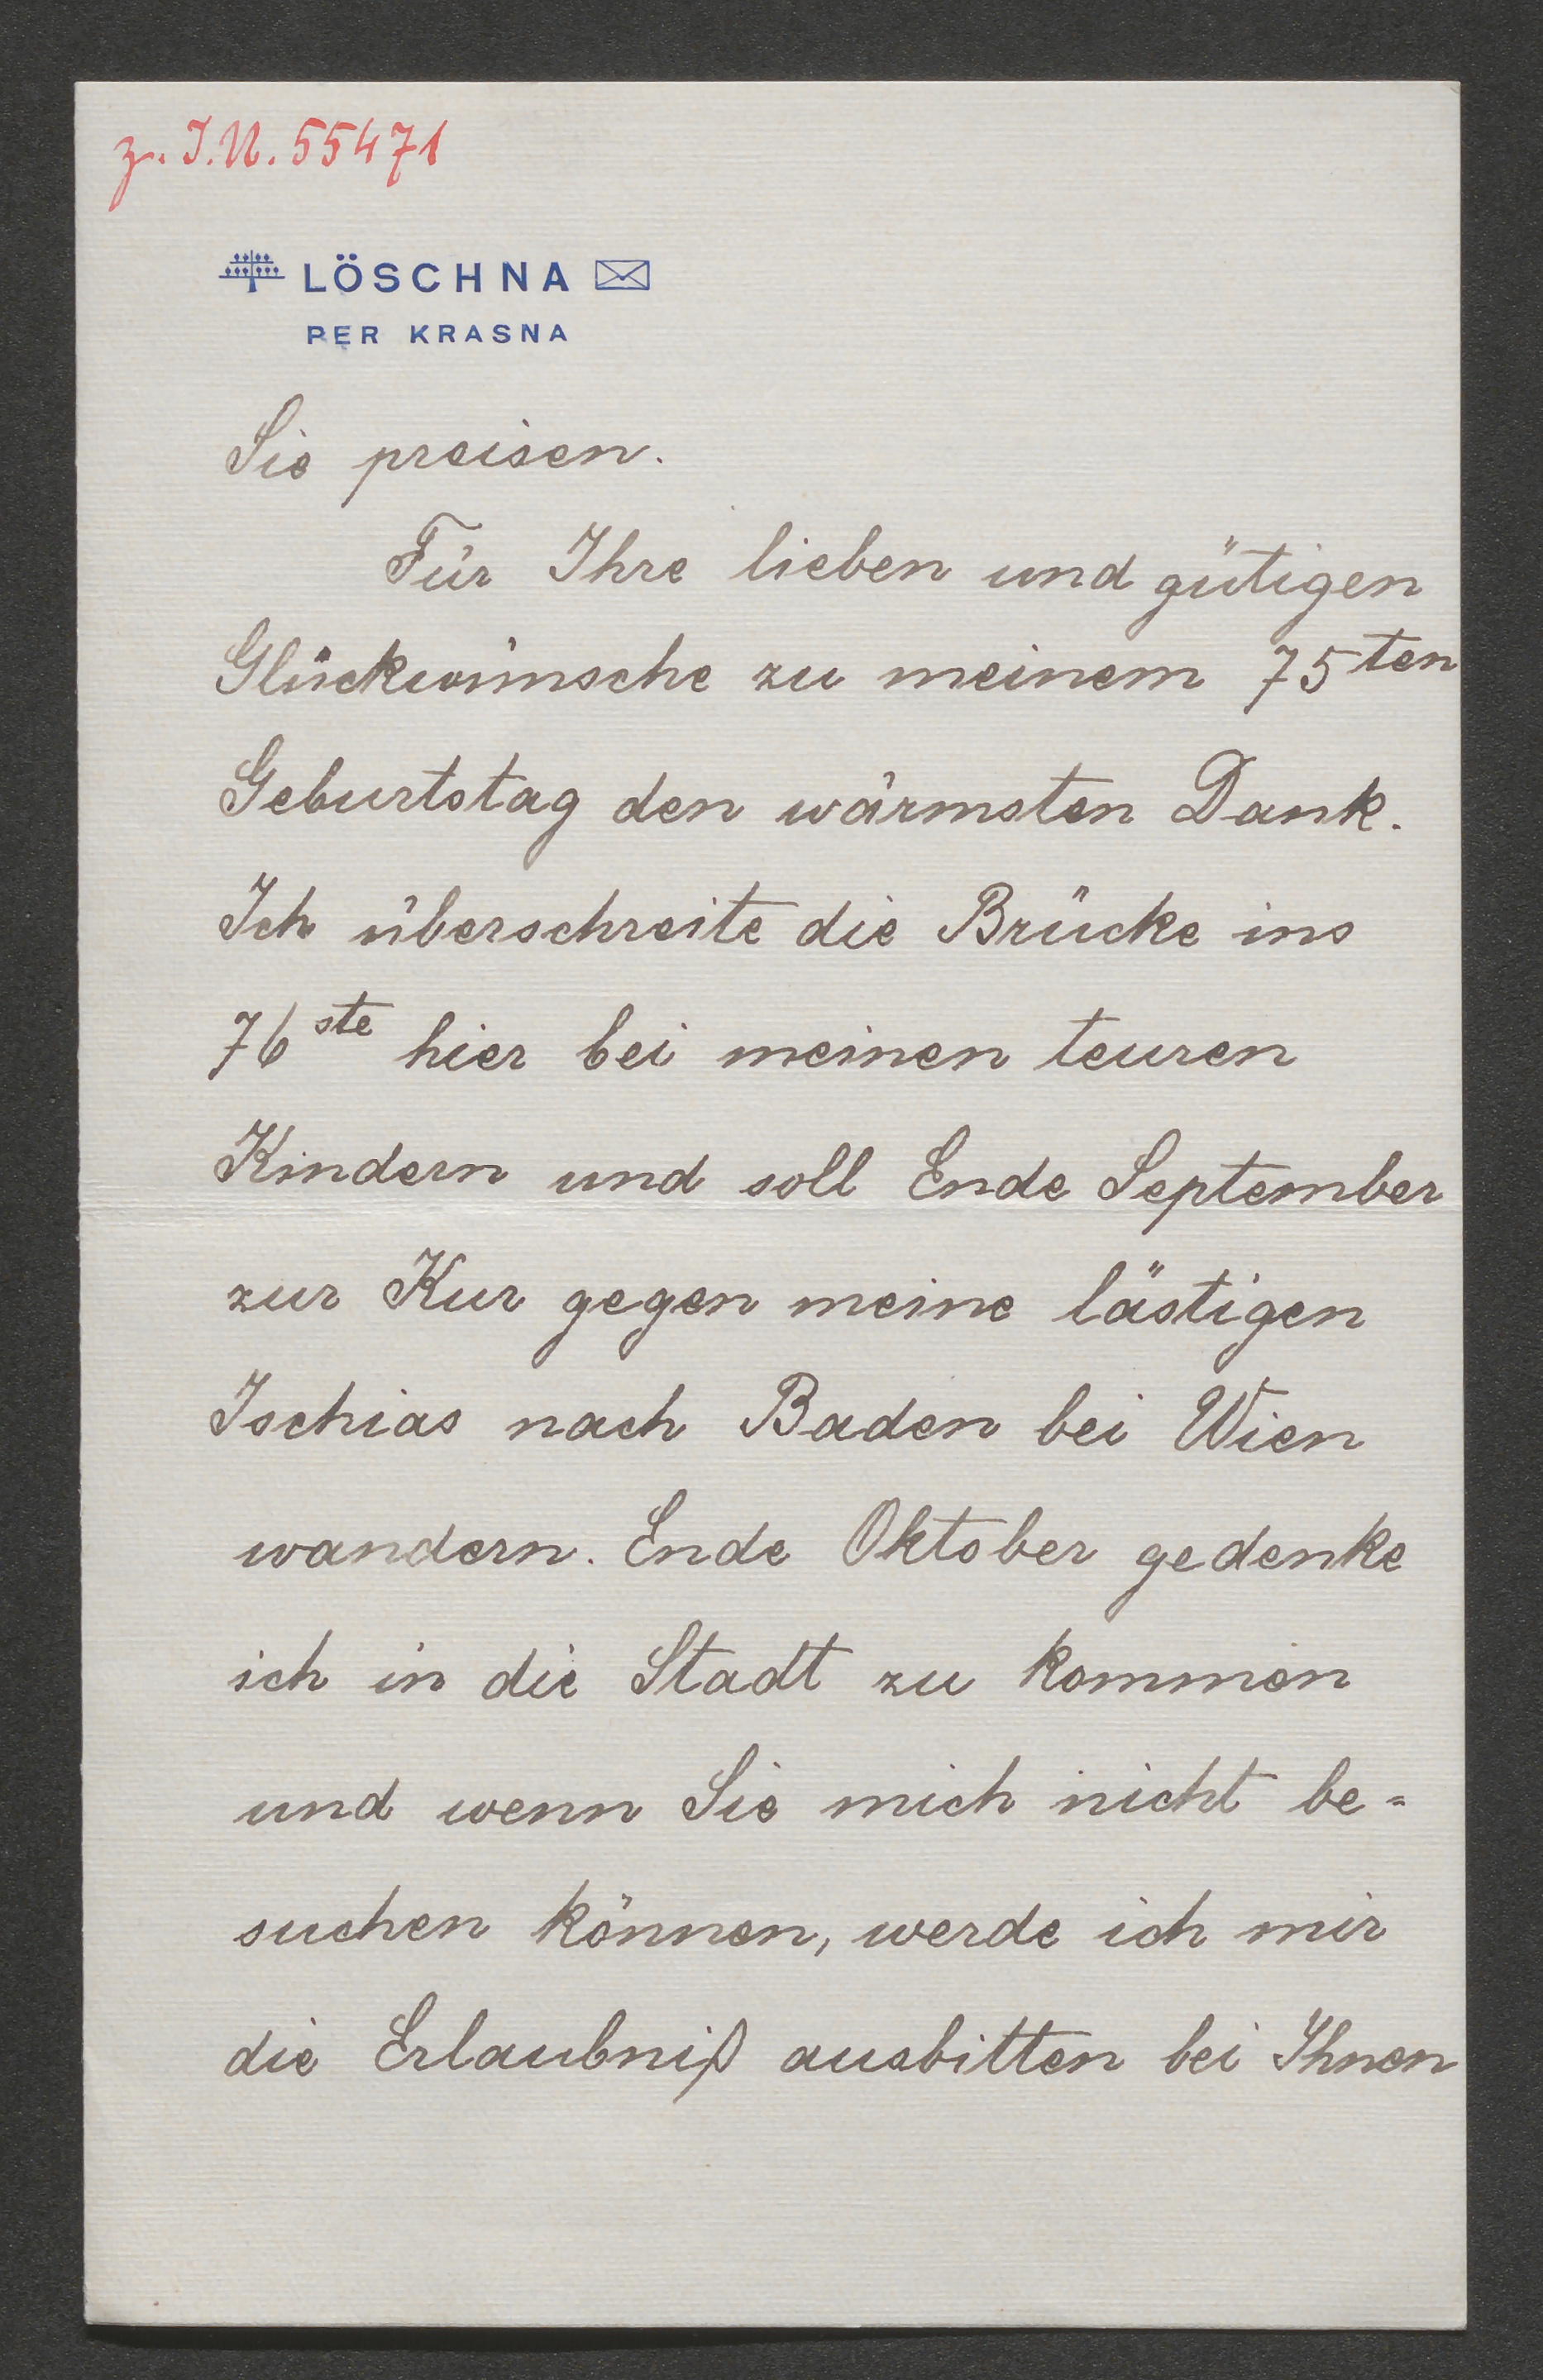 z. I.N. 55471
LÖSCHNA
PER KRASNA
Sie preisen.
Für Ihre lieben und gütigen
Glückwünsche zu meinem 75ten
Geburtstag den wärmsten Dank.
Ich überschreite die Brücke ins
76ste hier bei meinen teuren
Kindern und soll Ende September
zur Kur gegen meine lästigen
Ischias nach Baden bei Wien
wandern. Ende Oktober gedenke
ich in die Stadt zu kommen
und wenn Sie mich nicht be=
suchen können, werde ich mir
die Erlaubniß ausbitten bei Ihnen